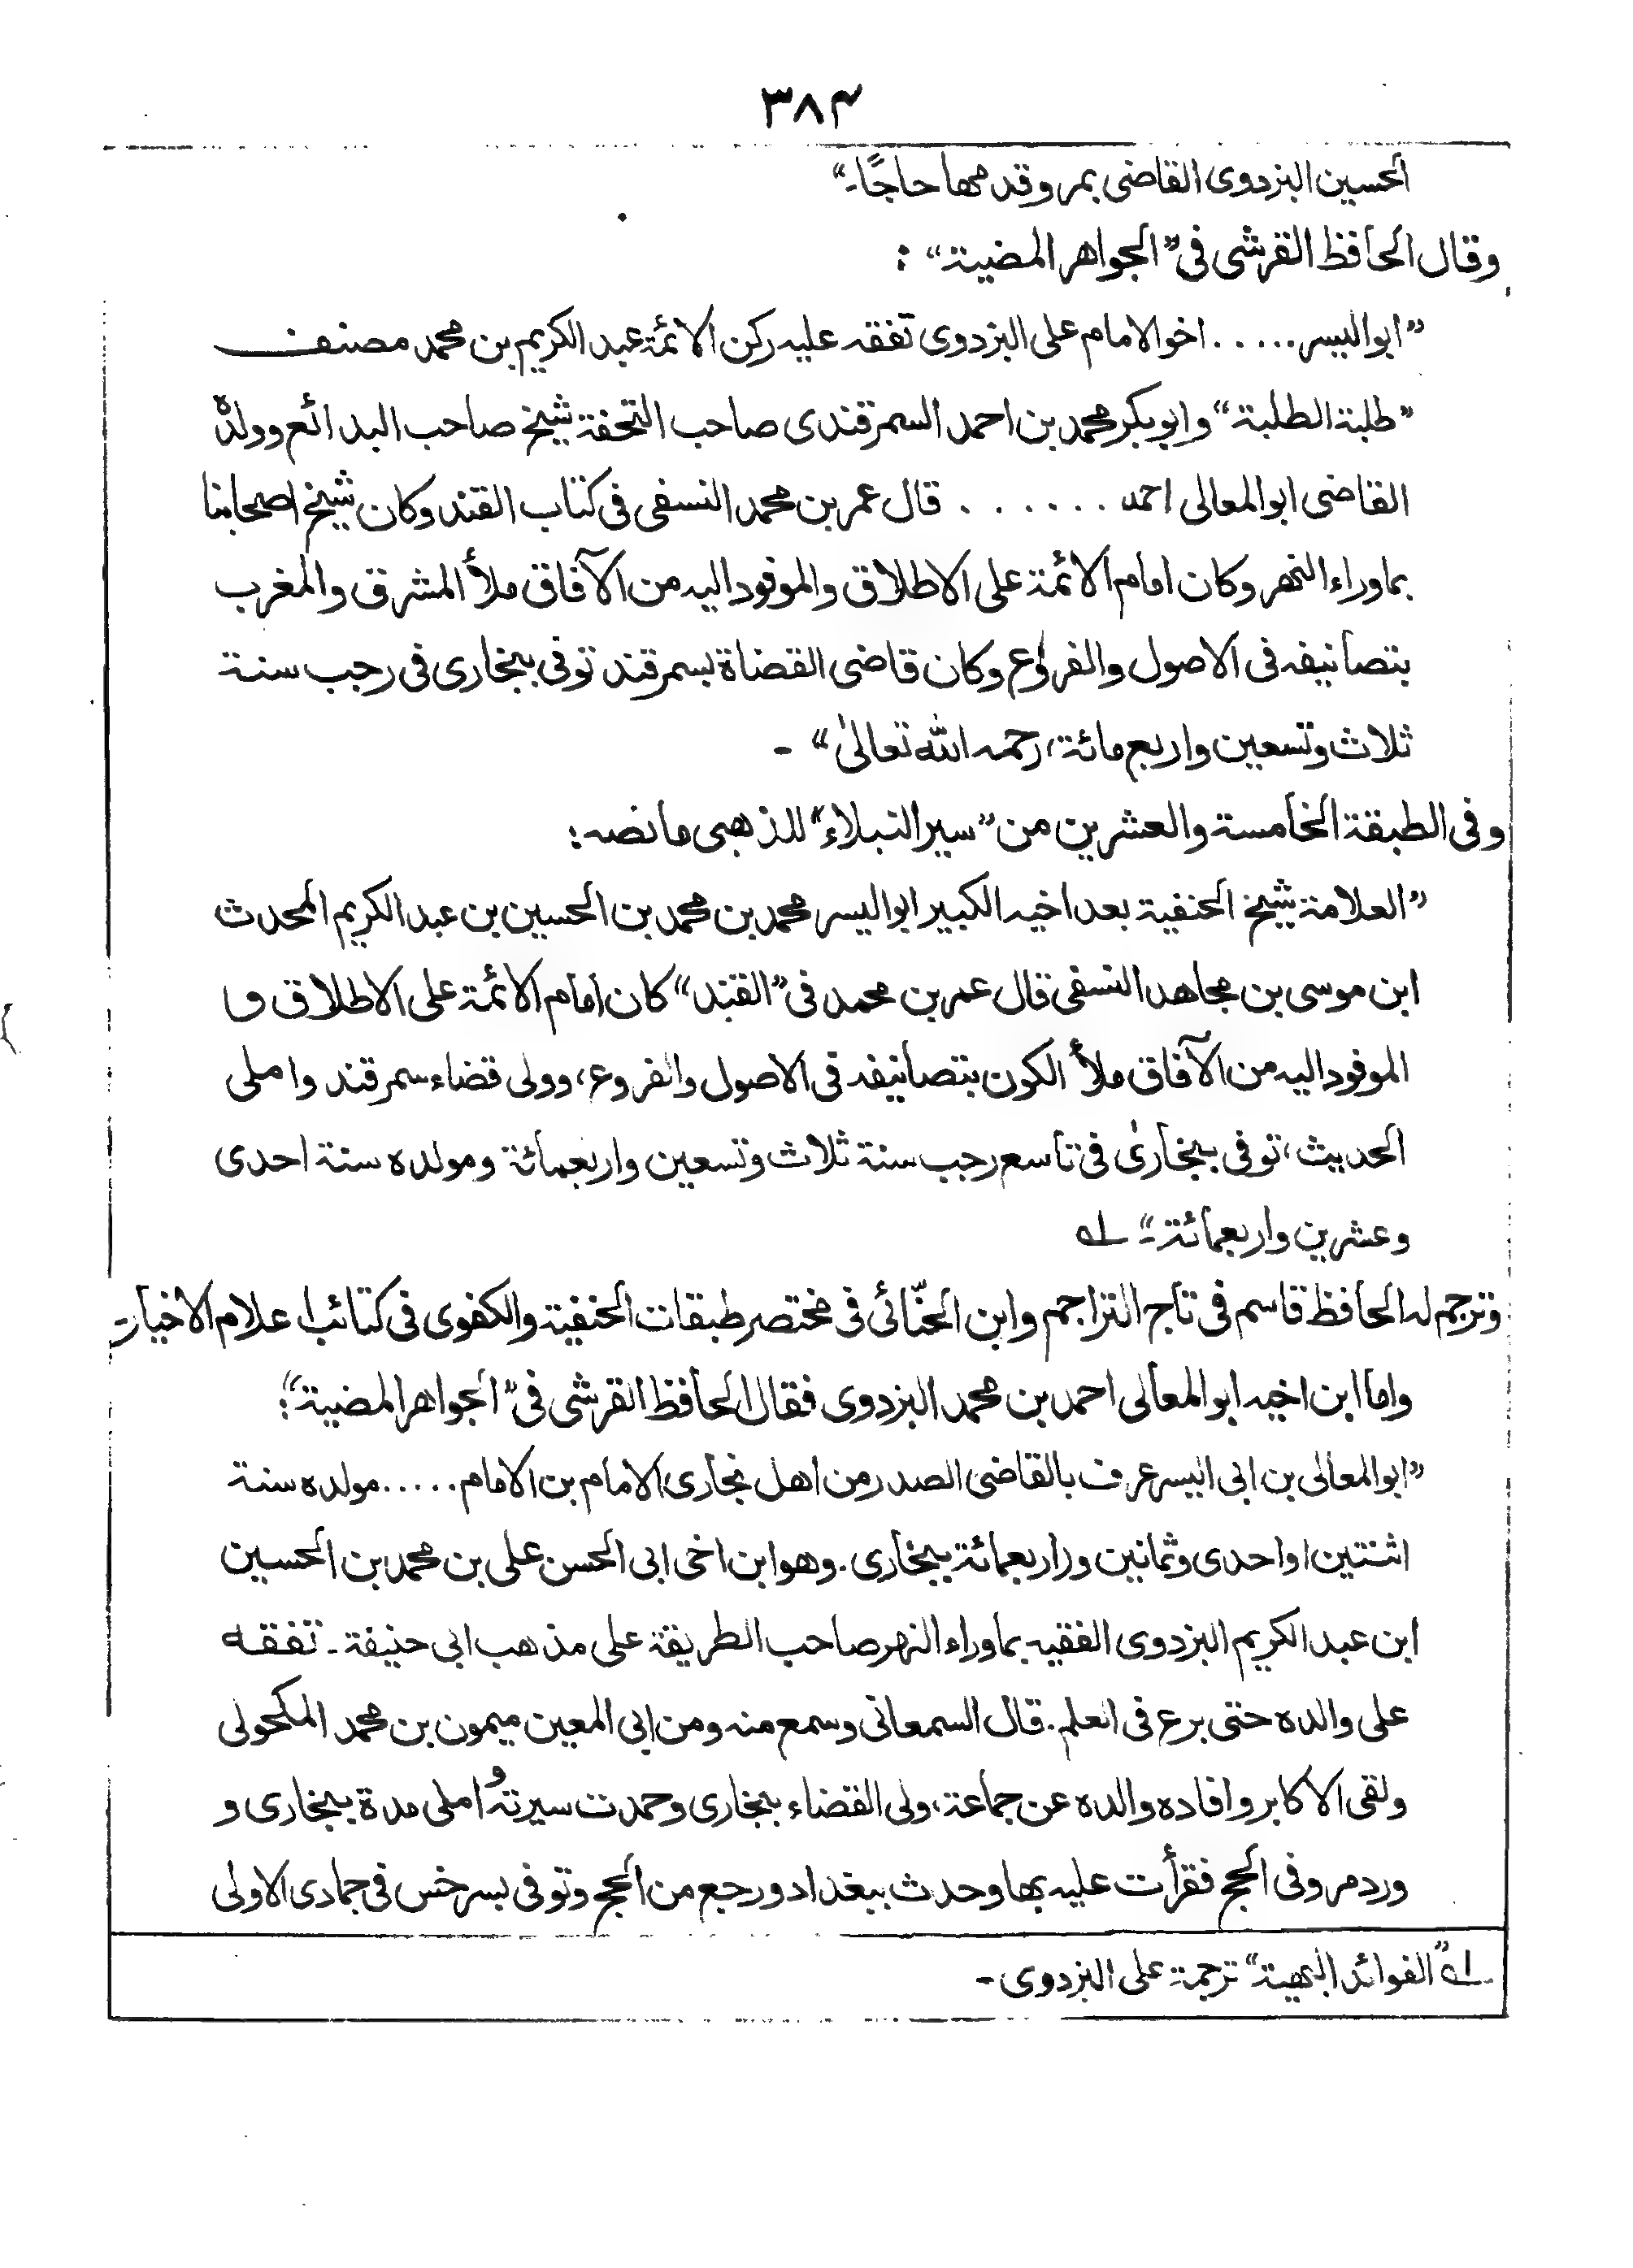 ۳۸۴
الحسين البزدوی القاضی بمر وقدمها حاجًا۔“
وقال الحافظ القرشی فی ”الجواهر المضیة“ :
”ابو الیسر..... اخو الامام علی البزدوی تفقه علیه رکن الائمة عبد الکریم بن محمد مصنف
”طلبة الطلبة“ و ابو بکر محمد بن احمد السمرقندی صاحب التحفة شیخ صاحب البدائع وولدہ
القاضی ابو المعالی احمد . . . . . . قال عمر بن محمد النسفی فی کتاب القند وکان شیخ اصحابنا
بماوراء النهر وکان امام الائمة علی الاطلاق والموفود الیه من الآفاق ملأ المشرق والمغرب
بتصانیفه فی الاصول والفروع وکان قاضی القضاة بسمرقند توفی ببخاری فی رجب سنة
ثلاث وتسعین واربع مائة، رحمه الله تعالیٰ“ -
وفی الطبقة الخامسة والعشرین من ”سیر النبلاء“ للذهبی ما نصه:
”العلامة شیخ الحنفیة بعد اخیه الکبیر ابو الیسر محمد بن محمد بن الحسین بن عبد الکریم المحدث
ابن موسی بن مجاهد النسفی قال عمر بن محمد فی ”القند“ کان امام الائمة علی الاطلاق و
الموفود الیه من الآفاق ملأ الکون بتصانیفه فی الاصول والفروع، وولی قضاء سمرقند واملی
الحدیث، توفی ببخاریٰ فی تاسع رجب سنة ثلاث وتسعین واربعمائة ومولده سنة احدی
وعشرین واربعمائة۔“ ؂۱ه
وترجم له الحافظ قاسم فی تاج التراجم وابن الحنّائی فی مختصر طبقات الحنفیة والکفوی فی کتائب اعلام الاخیار
واما ابن اخیه ابو المعالی احمد بن محمد البزدوی فقال الحافظ القرشی فی ”الجواهر المضیة“:
”ابو المعالی بن ابی الیسر عرف بالقاضی الصدر من اهل بخاری الامام بن الامام..... مولده سنة
اثنتین او احدی وثمانین واربعمائة ببخاری. وهو ابن اخی ابی الحسن علی بن محمد بن الحسین
ابن عبد الکریم البزدوی الفقیه بماوراء النهر صاحب الطریقة علی مذهب ابی حنیفة ۔ تفقه
علی والده حتی برع فی العلم. قال السمعانی وسمع منه ومن ابی المعین میمون بن محمد المکحولی
ولقی الاکابر وافاده والده عن جماعة، ولی القضاء ببخاری وحمدت سیرته و املی مدة ببخاری و
ورد مرو فی الحج فقرأت علیه بها وحدث ببغداد ورجع من الحج وتوفی بسرخس فی جمادی الاولی
؂۱ه ”الفوائد البهیة“ ترجمة علی البزدوی -